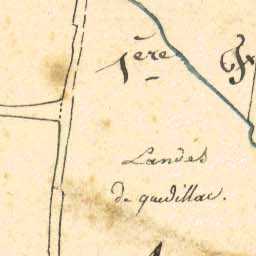 1ère
Landes
de quedillac.